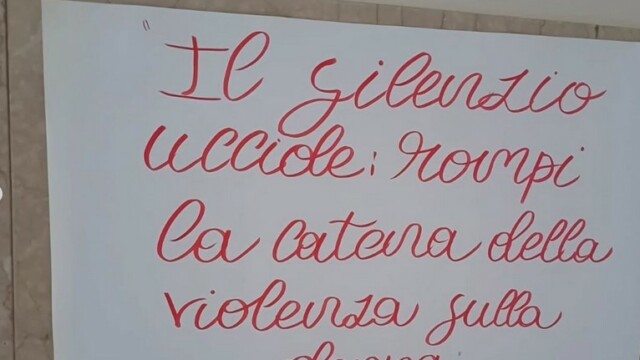 "Il silenzio
uccide: rompi
la catena della
violenza sulla
donna"